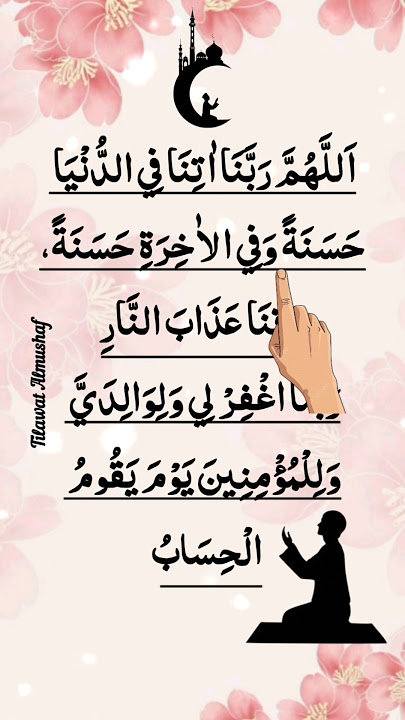 اَللَّهُمَّ رَبَّنَا اٰتِنَا فِي الدُّنْيَا
حَسَنَةً وَفِي الاٰخِرَةِ حَسَنَةً،
عَذَابَ النَّارِ
اغْفِرْ لِي وَلِوَالِدَيَّ
وَلِلْمُؤْمِنِينَ يَوْمَ يَقُومُ
الْحِسَابُ
Tilawat Almushaf